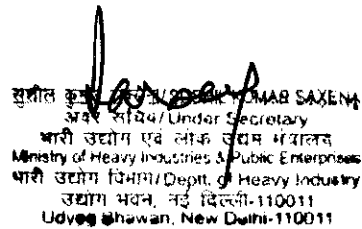 सुशील कुमार /SUSHIL KUMAR SAXENA
अवर सचिव/Under Secretary
भारी उद्योग एवं लोक उद्यम मंत्रालय
Ministry of Heavy Industries & Public Enterprises
भारी उद्योग विभाग/Deptt. of Heavy Industry
उद्योग भवन, नई दिल्ली-110011
Udyog Bhawan, New Delhi-110011